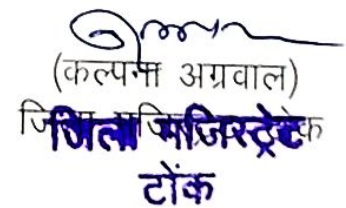 (कल्पना अग्रवाल)
जिला मजिस्ट्रेट
टोंक